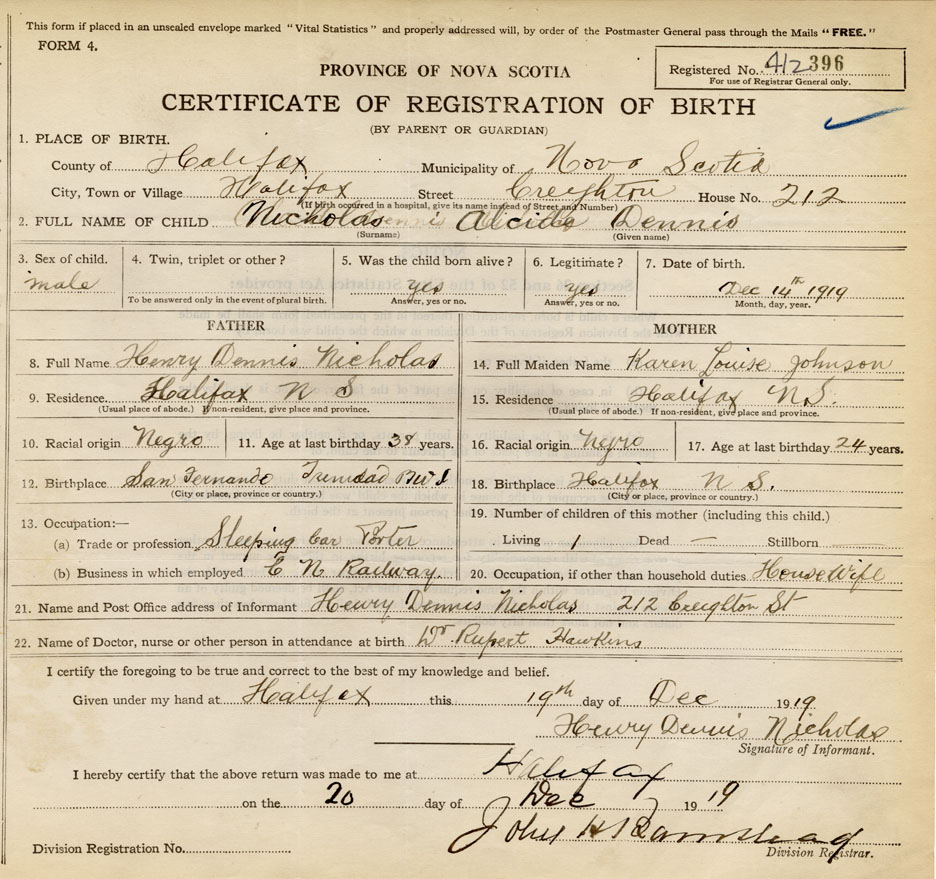 This form if placed in an unsealed envelope marked "Vital Statistics" and properly addressed will, by order of the Postmaster General pass through the Mails "FREE."
FORM 4.
Registered No. 412396
For use of Registrar General only.
PROVINCE OF NOVA SCOTIA
CERTIFICATE OF REGISTRATION OF BIRTH
(BY PARENT OR GUARDIAN)
1. PLACE OF BIRTH.
County of Halifax Municipality of Nova Scotia
City, Town or Village Halifax Street Creighton House No. 212
(If birth occurred in a hospital, give its name instead of Street and Number)
2. FULL NAME OF CHILD Nicholas Alcide Dennis
(Surname) (Given name)
3. Sex of child. 4. Twin, triplet or other? 5. Was the child born alive? 6. Legitimate? 7. Date of birth.
male yes yes Dec 14th 1919
To be answered only in the event of plural birth. Answer, yes or no. Answer, yes or no. Month, day, year.
FATHER MOTHER
8. Full Name Henry Dennis Nicholas 14. Full Maiden Name Karen Louise Johnson
9. Residence. Halifax N S 15. Residence Halifax N.S.
(Usual place of abode.) If non-resident, give place and province. (Usual place of abode.) If non-resident, give place and province.
10. Racial origin Negro 11. Age at last birthday 38 years. 16. Racial origin Negro 17. Age at last birthday 24 years.
12. Birthplace San Fernando Trinidad BWI 18. Birthplace Halifax N S.
(City or place, province or country.) (City or place, province or country.)
13. Occupation:— 19. Number of children of this mother (including this child.)
(a) Trade or profession Sleeping Car Porter Living 1 Dead — Stillborn
(b) Business in which employed C N Railway. 20. Occupation, if other than household duties HouseWife
21. Name and Post Office address of Informant Henry Dennis Nicholas 212 Creighton St
22. Name of Doctor, nurse or other person in attendance at birth Dr Rupert Hawkins
I certify the foregoing to be true and correct to the best of my knowledge and belief.
Given under my hand at Halifax this 19th day of Dec 1919
Henry Dennis Nicholas
Signature of Informant.
I hereby certify that the above return was made to me at Halifax
on the 20 day of Dec 1919
John H Barnstead
Division Registration No. Division Registrar.